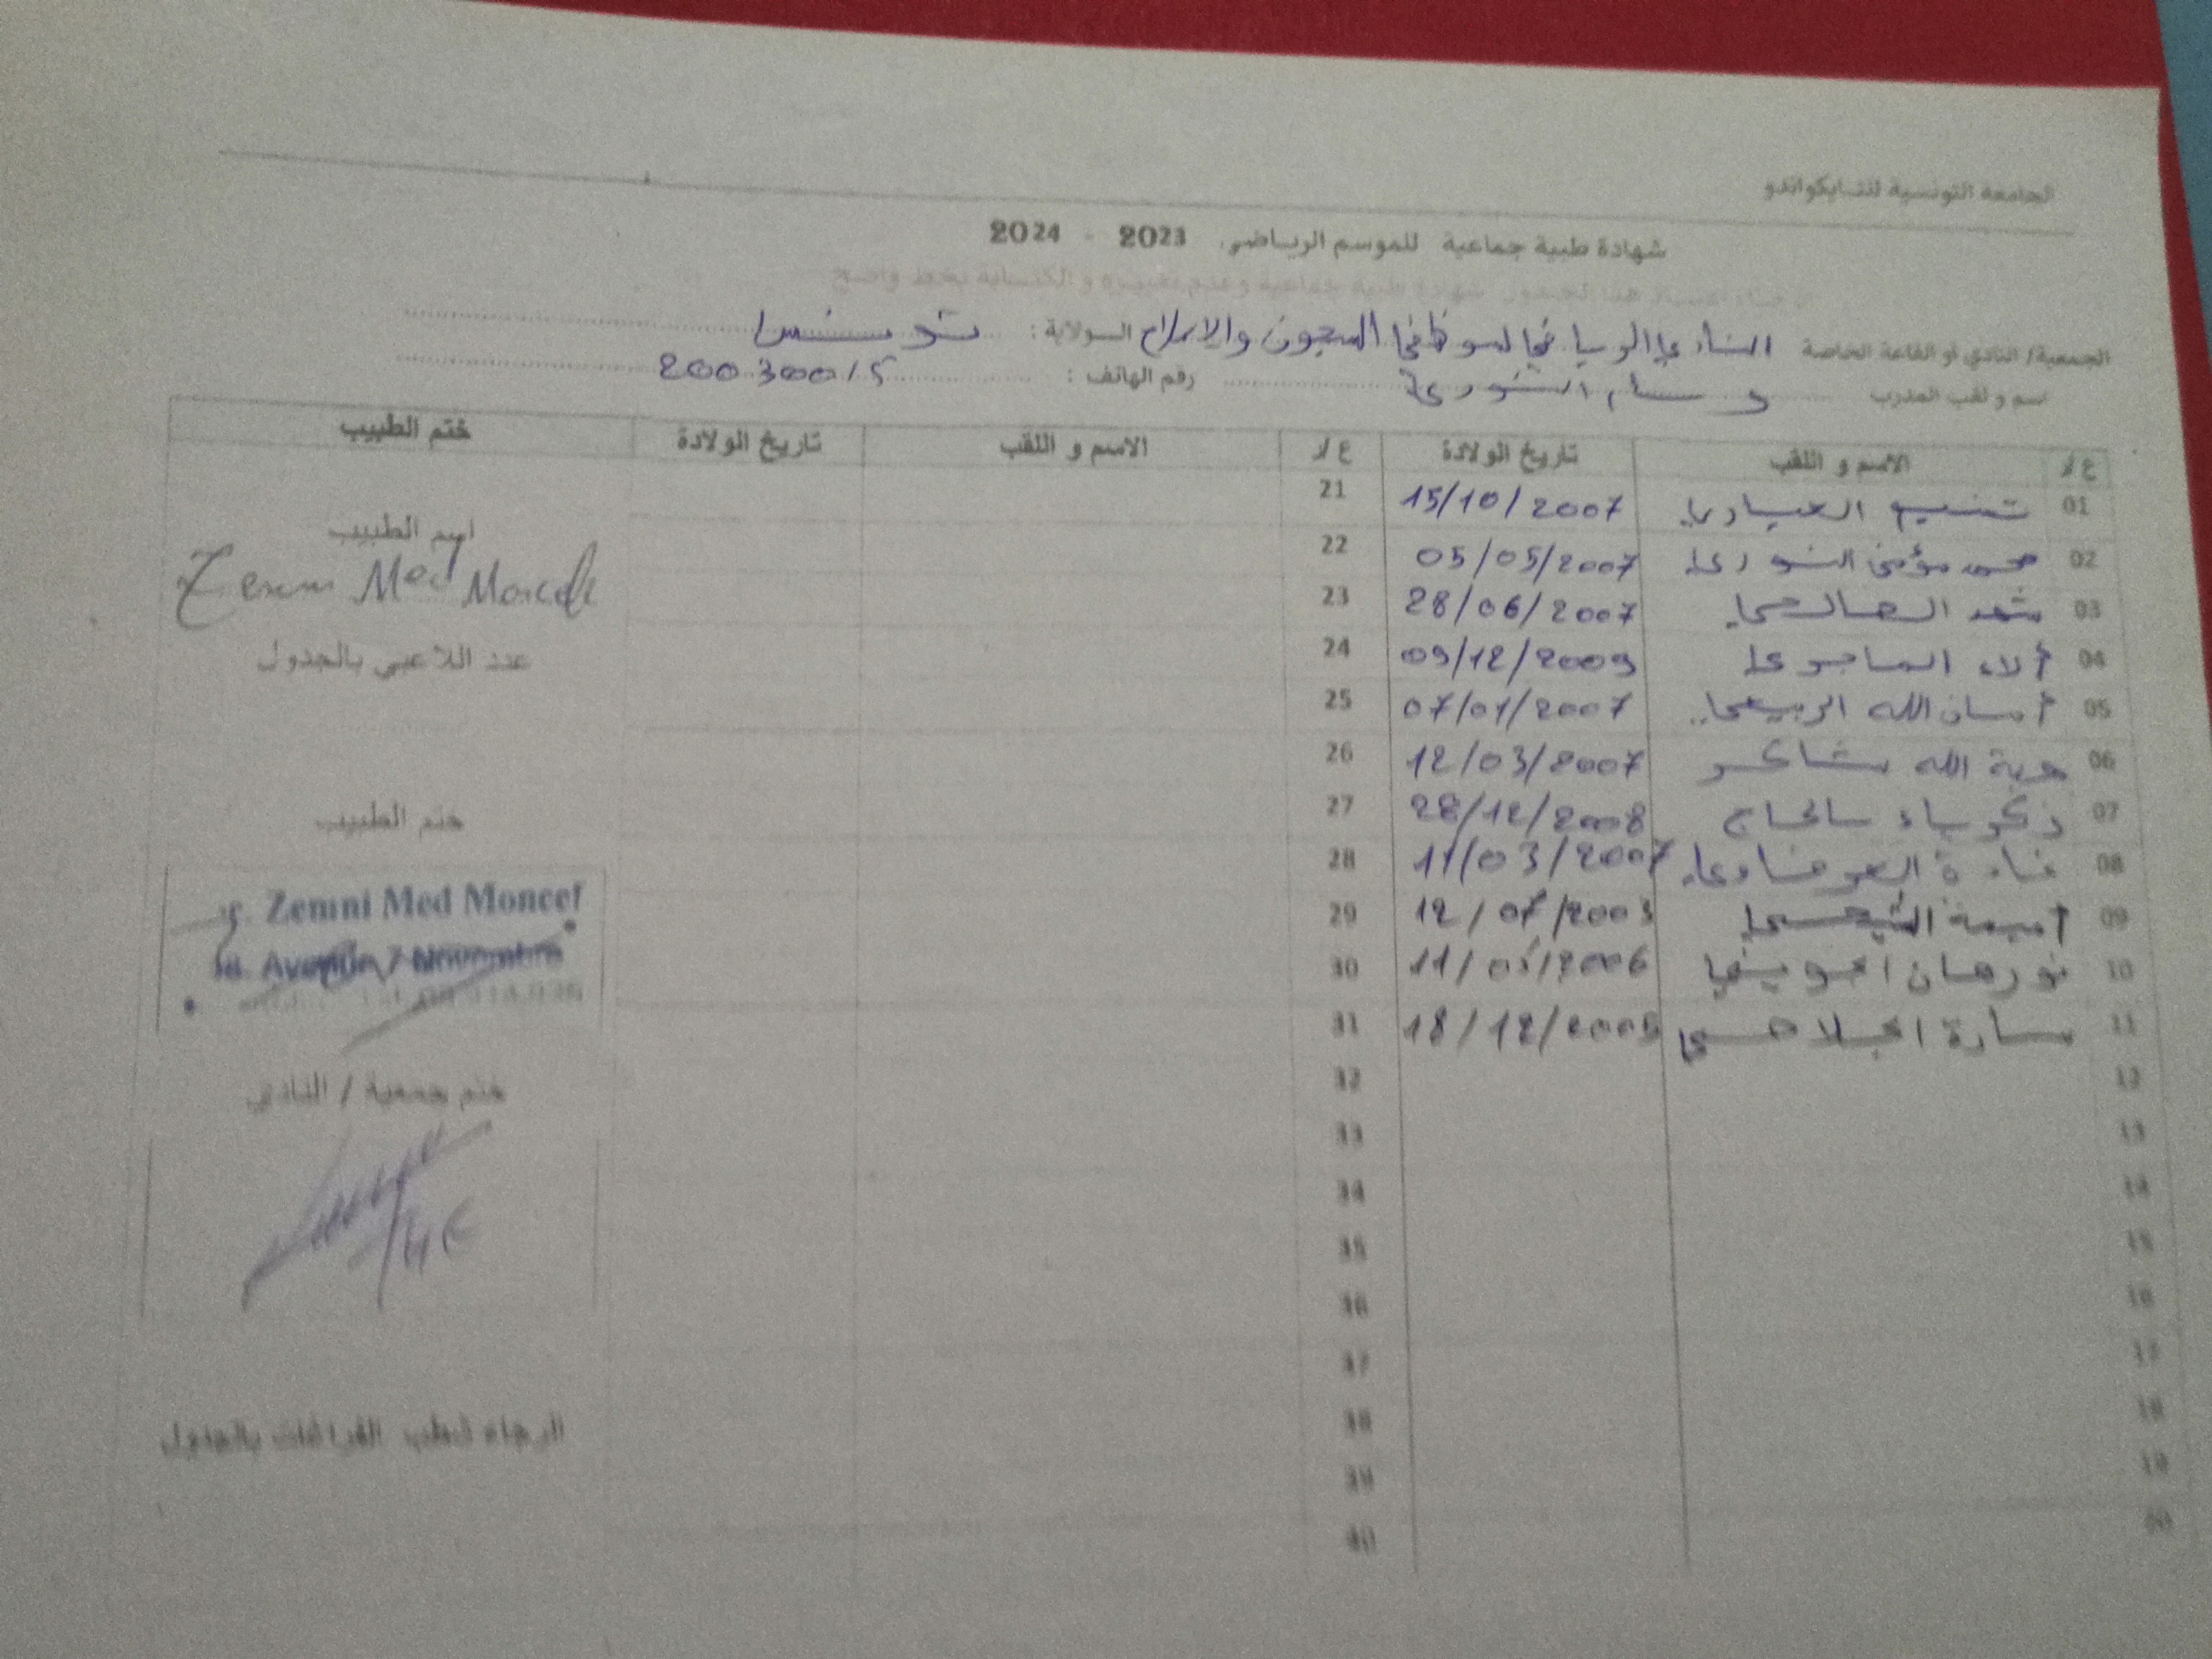 الجامعة التونسية للتايكواندو
شهادة طبية جماعية للموسم الرياضي 2023 - 2024
الجمعية/ النادي أو القاعة الخاصة النادي الرياضي لموظفي السجون والإصلاح الولاية: تونس
اسم و لقب المدرب وسام النوري رقم الهاتف:
ع/د الاسم و اللقب تاريخ الولادة ع/د الاسم و اللقب تاريخ الولادة ختم الطبيب
01 تسنيم العيادي 15/10/2007 21
02 محمد مؤمن النوري 05/05/2007 22
03 شهد الصالحي 28/06/2007 23
04 ألاء الماجري 09/12/2009 24
05 أمان الله الربيعي 07/01/2007 25
06 هبة الله شاكر 12/03/2007 26
07 زكرياء سالحاج 28/12/2008 27
08 غادة 11/03/2007 28
09 أميمة 12/07/2003 29
10 نورهان الجويني 30
11 سارة الجلاصي 31
12 32
13 33
14 34
15 35
16 36
17 37
18 38
19 39
20 40
اسم الطبيب
Zemni Med Moncef
عدد اللاعبي بالجدول
ختم الطبيب
Zemni Med Moncef
Avenue 7 Novembre
ختم جمعية / النادي
الرجاء شطب الفراغات بالجدول